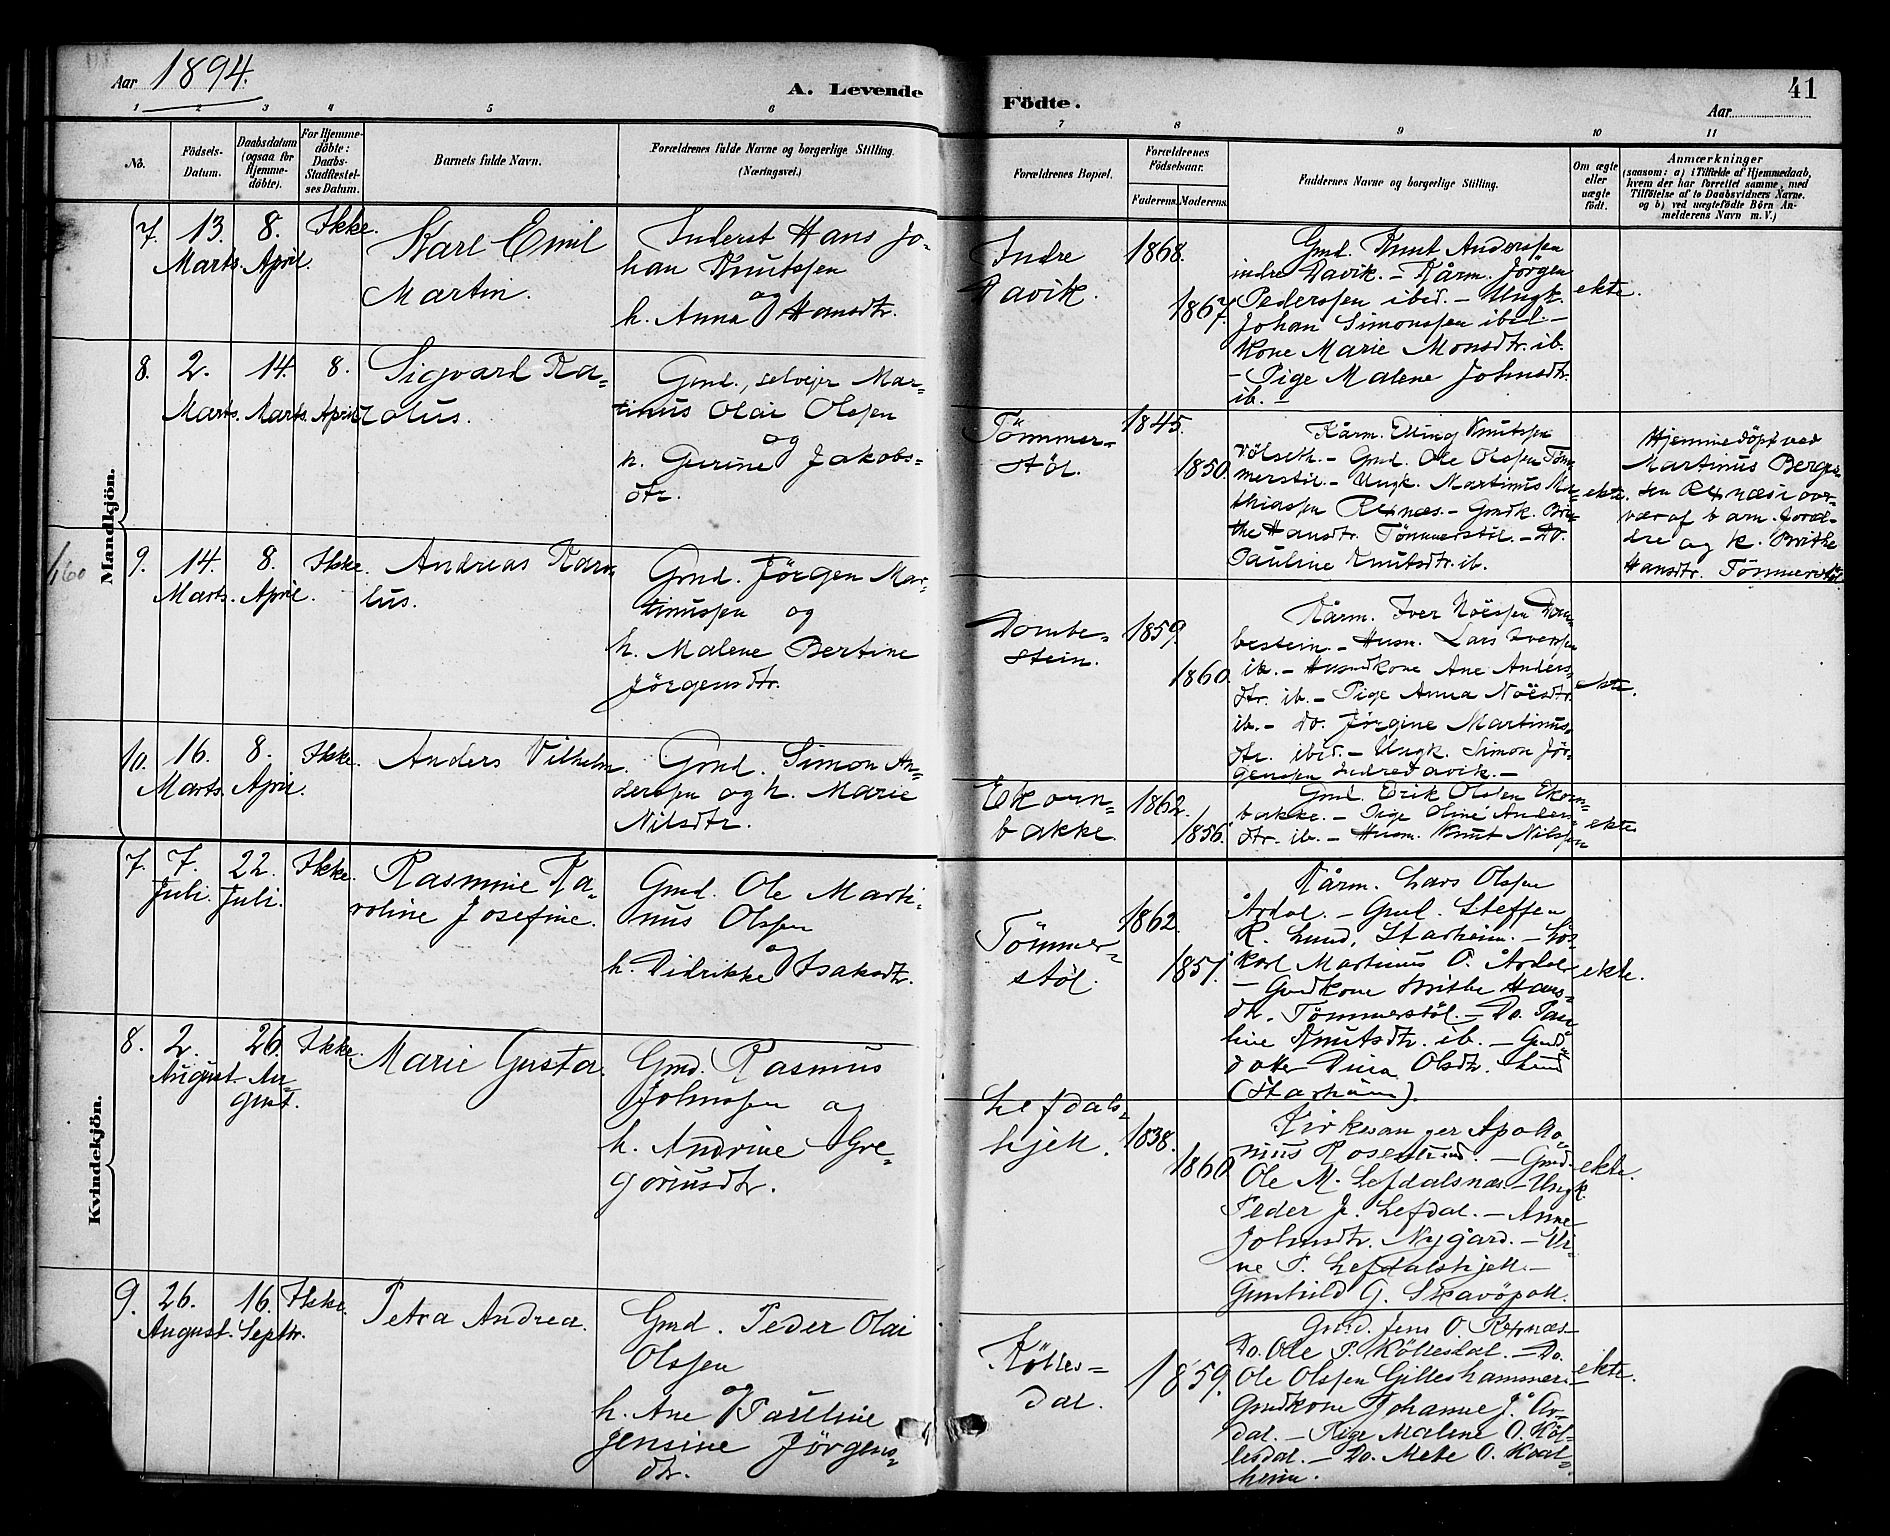 Aar 1894.
A. Levende Födte.
Aar
41
1 2 3 4 5 6 7 8 9 10 11
No.
Födsels-
Datum.
Daabsdatum
(ogsaa for
Hjemme-
döbte).
For Hjemme-
döbte:
Daabs-
Stadfæstel-
ses Datum.
Barnets fulde Navn.
Forældrenes fulde Navne og borgerlige Stilling.
(Næringsvei.)
Forældrenes Bopæl.
Forældrenes
Födselsaar.
Faderens. Moderens.
Faddernes Navne og borgerlige Stilling.
Om ægte
eller
uægte
födt.
Anmærkninger
(saasom: a) i Tilfælde af Hjemmedaab,
hvem der har forrettet samme, med
Tilföielse af to Daabsvidners Navne.
og b) ved uægtefödte Börn An-
melderens Navn m. V.)
Mandkjön.
7.
13.
Marts.
8.
April.
Ikke.
Karl Emil
Martin.
Inderst Hans Jo-
han Knutssen
og
h. Anna Hansdtr.
Indre
Davik.
1868.
1867.
Gmd. Knut Anderssen
indre Davik. - Kårm. Jörgen
Pederssen ibid. - Ungk.
Johan Simonssen ibid. -
Kone Marie Monsdtr. ib.
- Pige Malene Johnsdtr.
ib. -
ekte.
8.
2.
Marts.
14.
Marts.
8.
April
Sigvard Ka-
rolus.
Gmd., selvejer Mar-
tinus Olai Olssen
og
h. Gurine Jakobs-
dtr.
Tömmer-
stöl.
1845.
1850.
Kårm. Elling Knutssen
Völseth. - Gmd. Ole Olssen Töm-
merstöl. - Ungk. Martinus Ma-
thiassen Rexnæs. - Gmdk. Bri-
the Hansdtr. Tömmerstöl. - Do.
Pauline Knutsdtr. ib.
ekte.
Hjemmedöpt ved
Martinus Berge-
sen Rexnæs i over-
vær af barn. foræl-
dre og k. Brithe
Hansdtr. Tömmerstöl
160
9.
14.
Marts.
8.
April.
Ikke.
Andreas Karo-
lus.
Gmd. Jörgen Mar-
tinussen og
h. Malene Bertine
Jörgensdtr.
Dombe-
stein.
1859.
1860.
Kårm. Iver Noëssen Dom-
bestein. - Husm. Lars Iverssen
ib. - Husmdkone Ane Anders-
dtr. ib. - Pige Anna Noësdtr.
ib. - Do. Jörgine Martinus-
dtr. ibid. - Ungk. Simon Jör-
genssen Indre Davik. -
ekte.
10.
16.
Marts.
8.
April.
Ikke.
Anders Vilhelm.
Gmd. Simon An-
derssen og h. Marie
Nilsdtr.
Ekorn-
bakke.
1862.
1856.
Gmd. Erik Olssen Ekorn-
bakke. - Pige Oline Anders-
dtr. ib. - Husm. Knut Nilssen
ekte.
Kvindekjön.
7.
7.
Juli.
22.
Juli.
Ikke.
Rasmine Ka-
roline Josefine.
Gmd. Ole Marti-
nus Olssen
og
h. Didrikke Isaksdtr.
Tömmer-
stöl.
1862.
1857.
Kårm. Lars Olssen
Årdal. - Gmd. Steffen
R. Lund, Starheim. - Lös-
karl Martinus O. Årdal
- Gmdkone Brithe Hans-
dtr. Tömmerstöl. - Do. Pau-
line Knutsdtr. ib. - Gmd-
datter Dina Olsdtr. Lund
(Starheim).
ekte.
8.
2.
August
26.
Au-
gust.
Ikke.
Marie Gusta
Gmd. Rasmus
Johnssen og
h. Andrine Gre-
goriusdtr.
Lefdals-
hjell.
1838.
1860
Kirkesanger Apollo-
nius Rosenlund. - Gmd.
Ole M. Lefdalsnæs. - Ungk.
Peder J. Lefdal. - Anne
Johnsdtr. Nygård. -
ne P. Lefdalshjell. -
Gunhild G. Skavöpoll.
ekte.
9.
26.
August.
16.
Septbr.
Ikke.
Petra Andrea.
Gmd. Peder Olai
Olssen
og
h. Ane Pauline
Jensine Jörgens-
dtr.
Kölles-
dal.
1859.
Gmd. Jens O. Rexnæs -
Do. Ole P. Köllesdal. - Do.
Ole Olssen Gilleshammer. -
Gmdkone Johanne J. År-
dal. - Pige Malene O. Köl-
lesdal. - Do. Mete O. Kval-
heim.
ekte.